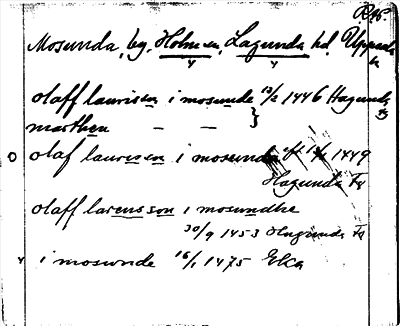 Mosunda, by, Holm sn, Lagunda hd, Uppsala
ln
olaff laurissn i mosunde 13/2 1446 Hagunda
marthen — —
olaf laurissn i mosunda 1449
Hagunda
olaff larensson i mosundhe
30/9 1453 Hagunda
i mosunde 16/1 1475 Eka